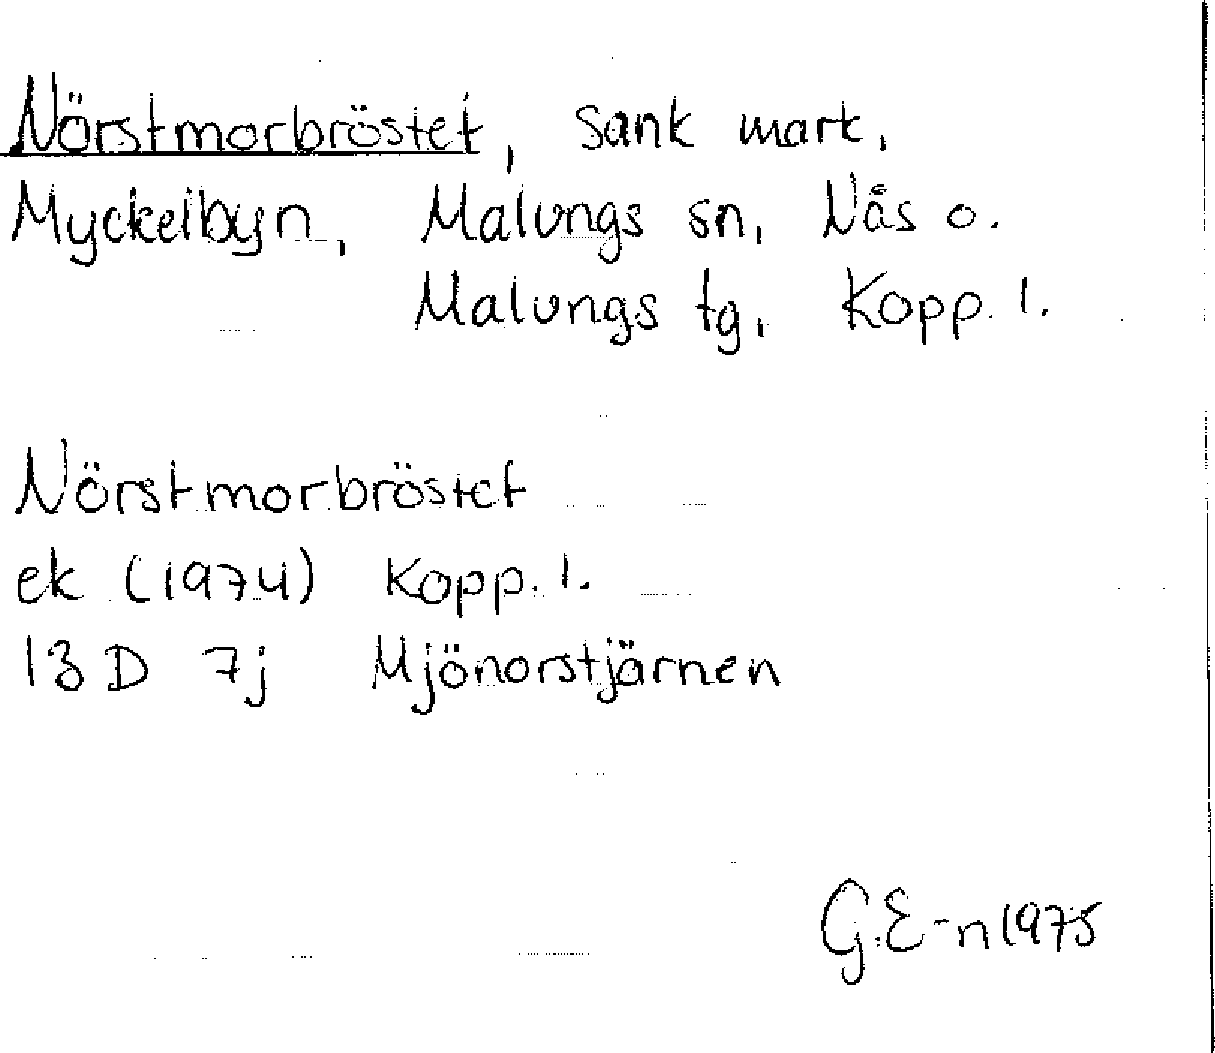 Nörstmorbröstet, sank mark,
Myckelbyn, Malungs sn, Nås o.
Malungs tg, Kopp. l.
Nörstmorbröstet
ek (1974) Kopp. l.
13 D 7j Mjönorstjärnen
G.E-n 1975